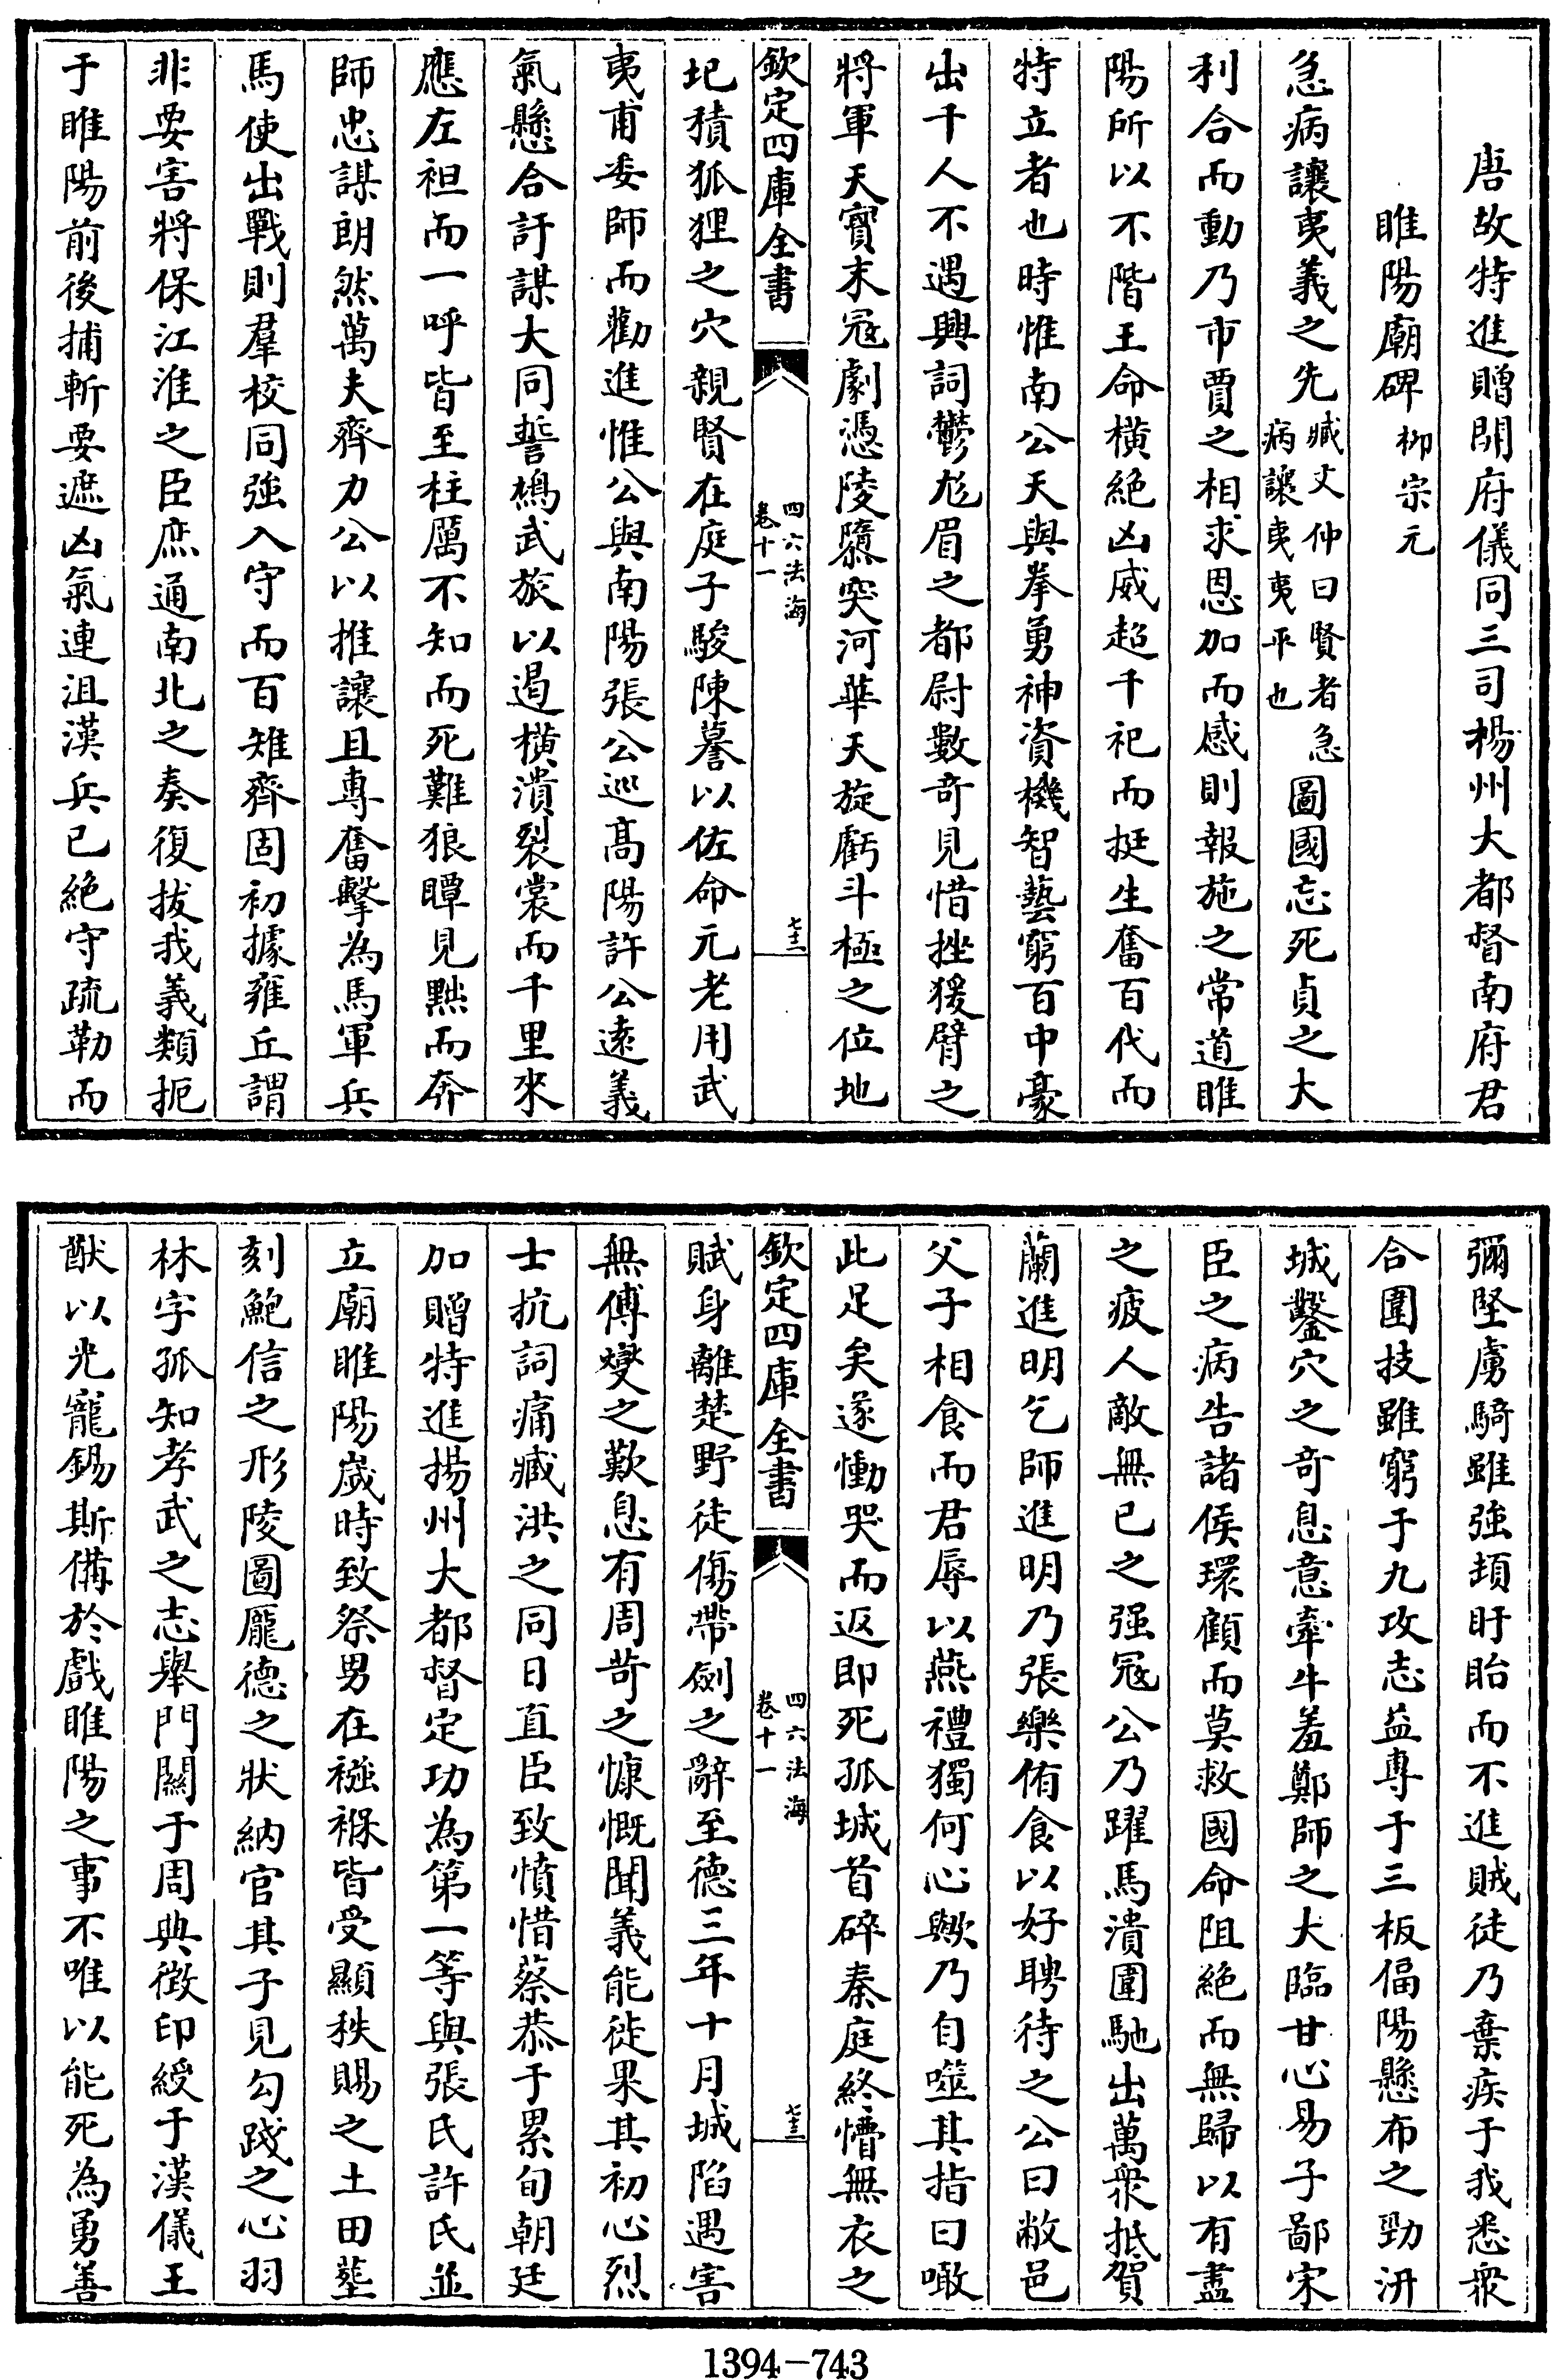 唐故特進贈開府儀同三司楊州大都督南府君
睢陽廟碑　柳宗元
急病讓夷義之先臧文仲曰賢者急病讓夷夷平也圖國忘死貞之大
利合而動乃市賈之相求恩加而感則報施之常道睢
陽所以不階王命橫絶凶威超千祀而挺生奮百代而
特立者也時惟南公天與拳勇神資機智藝窮百中豪
出千人不遇興詞鬱尨眉之都尉數奇見惜挫猨臂之
將軍天寶末寇劇憑陵隳突河華天旋虧斗極之位地
欽定四庫全書
四六法海
卷十一
七十二
圮積狐狸之穴親賢在庭子駿陳謩以佐命元老用武
夷甫委師而勸進惟公與南陽張公巡髙陽許公遠義
氣懸合訏謀大同誓鳩武旅以遏橫潰裂裳而千里來
應左袒而一呼皆至柱厲不知而死難狼瞫見黜而奔
師忠謀朗然萬夫齊力公以推讓且專奮擊為馬軍兵
馬使出戰則羣校同強入守而百雉齊固初據雍丘謂
非要害將保江淮之臣庶通南北之奏復拔我義類扼
于睢陽前後捕斬要遮凶氣連沮漢兵已絶守疏勒而
彌堅虜騎雖強頓盱眙而不進賊徒乃棄疾于我悉衆
合圍技雖窮于九攻志益專于三板偪陽懸布之勁汧
城鑿穴之奇息意牽牛羞鄭師之大臨甘心易子鄙宋
臣之病告諸侯環顧而莫救國命阻絶而無歸以有盡
之疲人敵無已之强寇公乃躍馬潰圍馳出萬衆抵賀
蘭進明乞師進明乃張樂侑食以好聘待之公曰敝邑
父子相食而君辱以燕禮獨何心歟乃自噬其指曰噉
此足矣遂慟哭而返即死孤城首碎秦庭終懵無衣之
欽定四庫全書
四六法海
卷十一
七十三
賦身離楚野徒傷帶劍之辭至德三年十月城陷遇害
無傅燮之歎息有周苛之慷慨聞義能徙果其初心烈
士抗詞痛臧洪之同日直臣致憤惜蔡恭于累旬朝廷
加贈特進揚州大都督定功為第一等與張氏許氏並
立廟睢陽嵗時致祭男在襁褓皆受顯秩賜之土田塟
刻鮑信之形陵圖龎德之狀納官其子見勾踐之心羽
林字孤知孝武之志舉門關于周典徴印綬于漢儀王
猷以光寵錫斯備於戲睢陽之事不唯以能死為勇善
1394-743